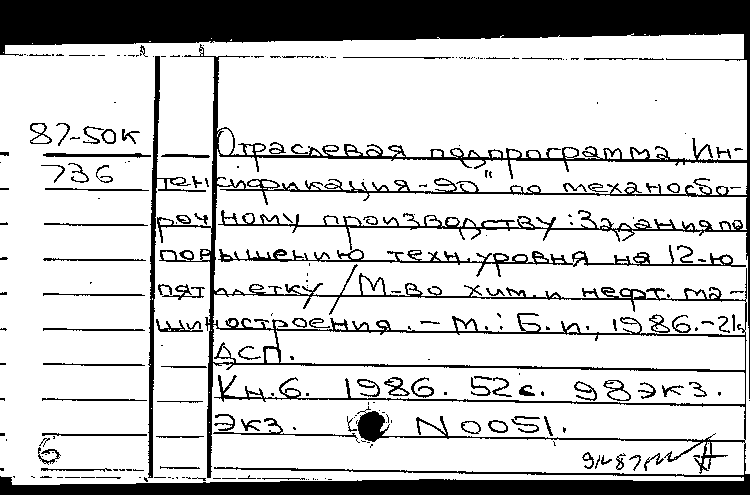 87-50к
736
Отраслевая подпрограмма „Ин-
тенсификация-90" по механосбо-
рочному производству: Задания по
повышению техн. уровня на 12-ю
пятилетку / М-во хим. и нефт. ма-
шиностроения. - М.: Б. и., 1986. - 21
ДСП.
Кн. 6. 1986. 52 с. 98 экз.
Экз. N 0051.
6